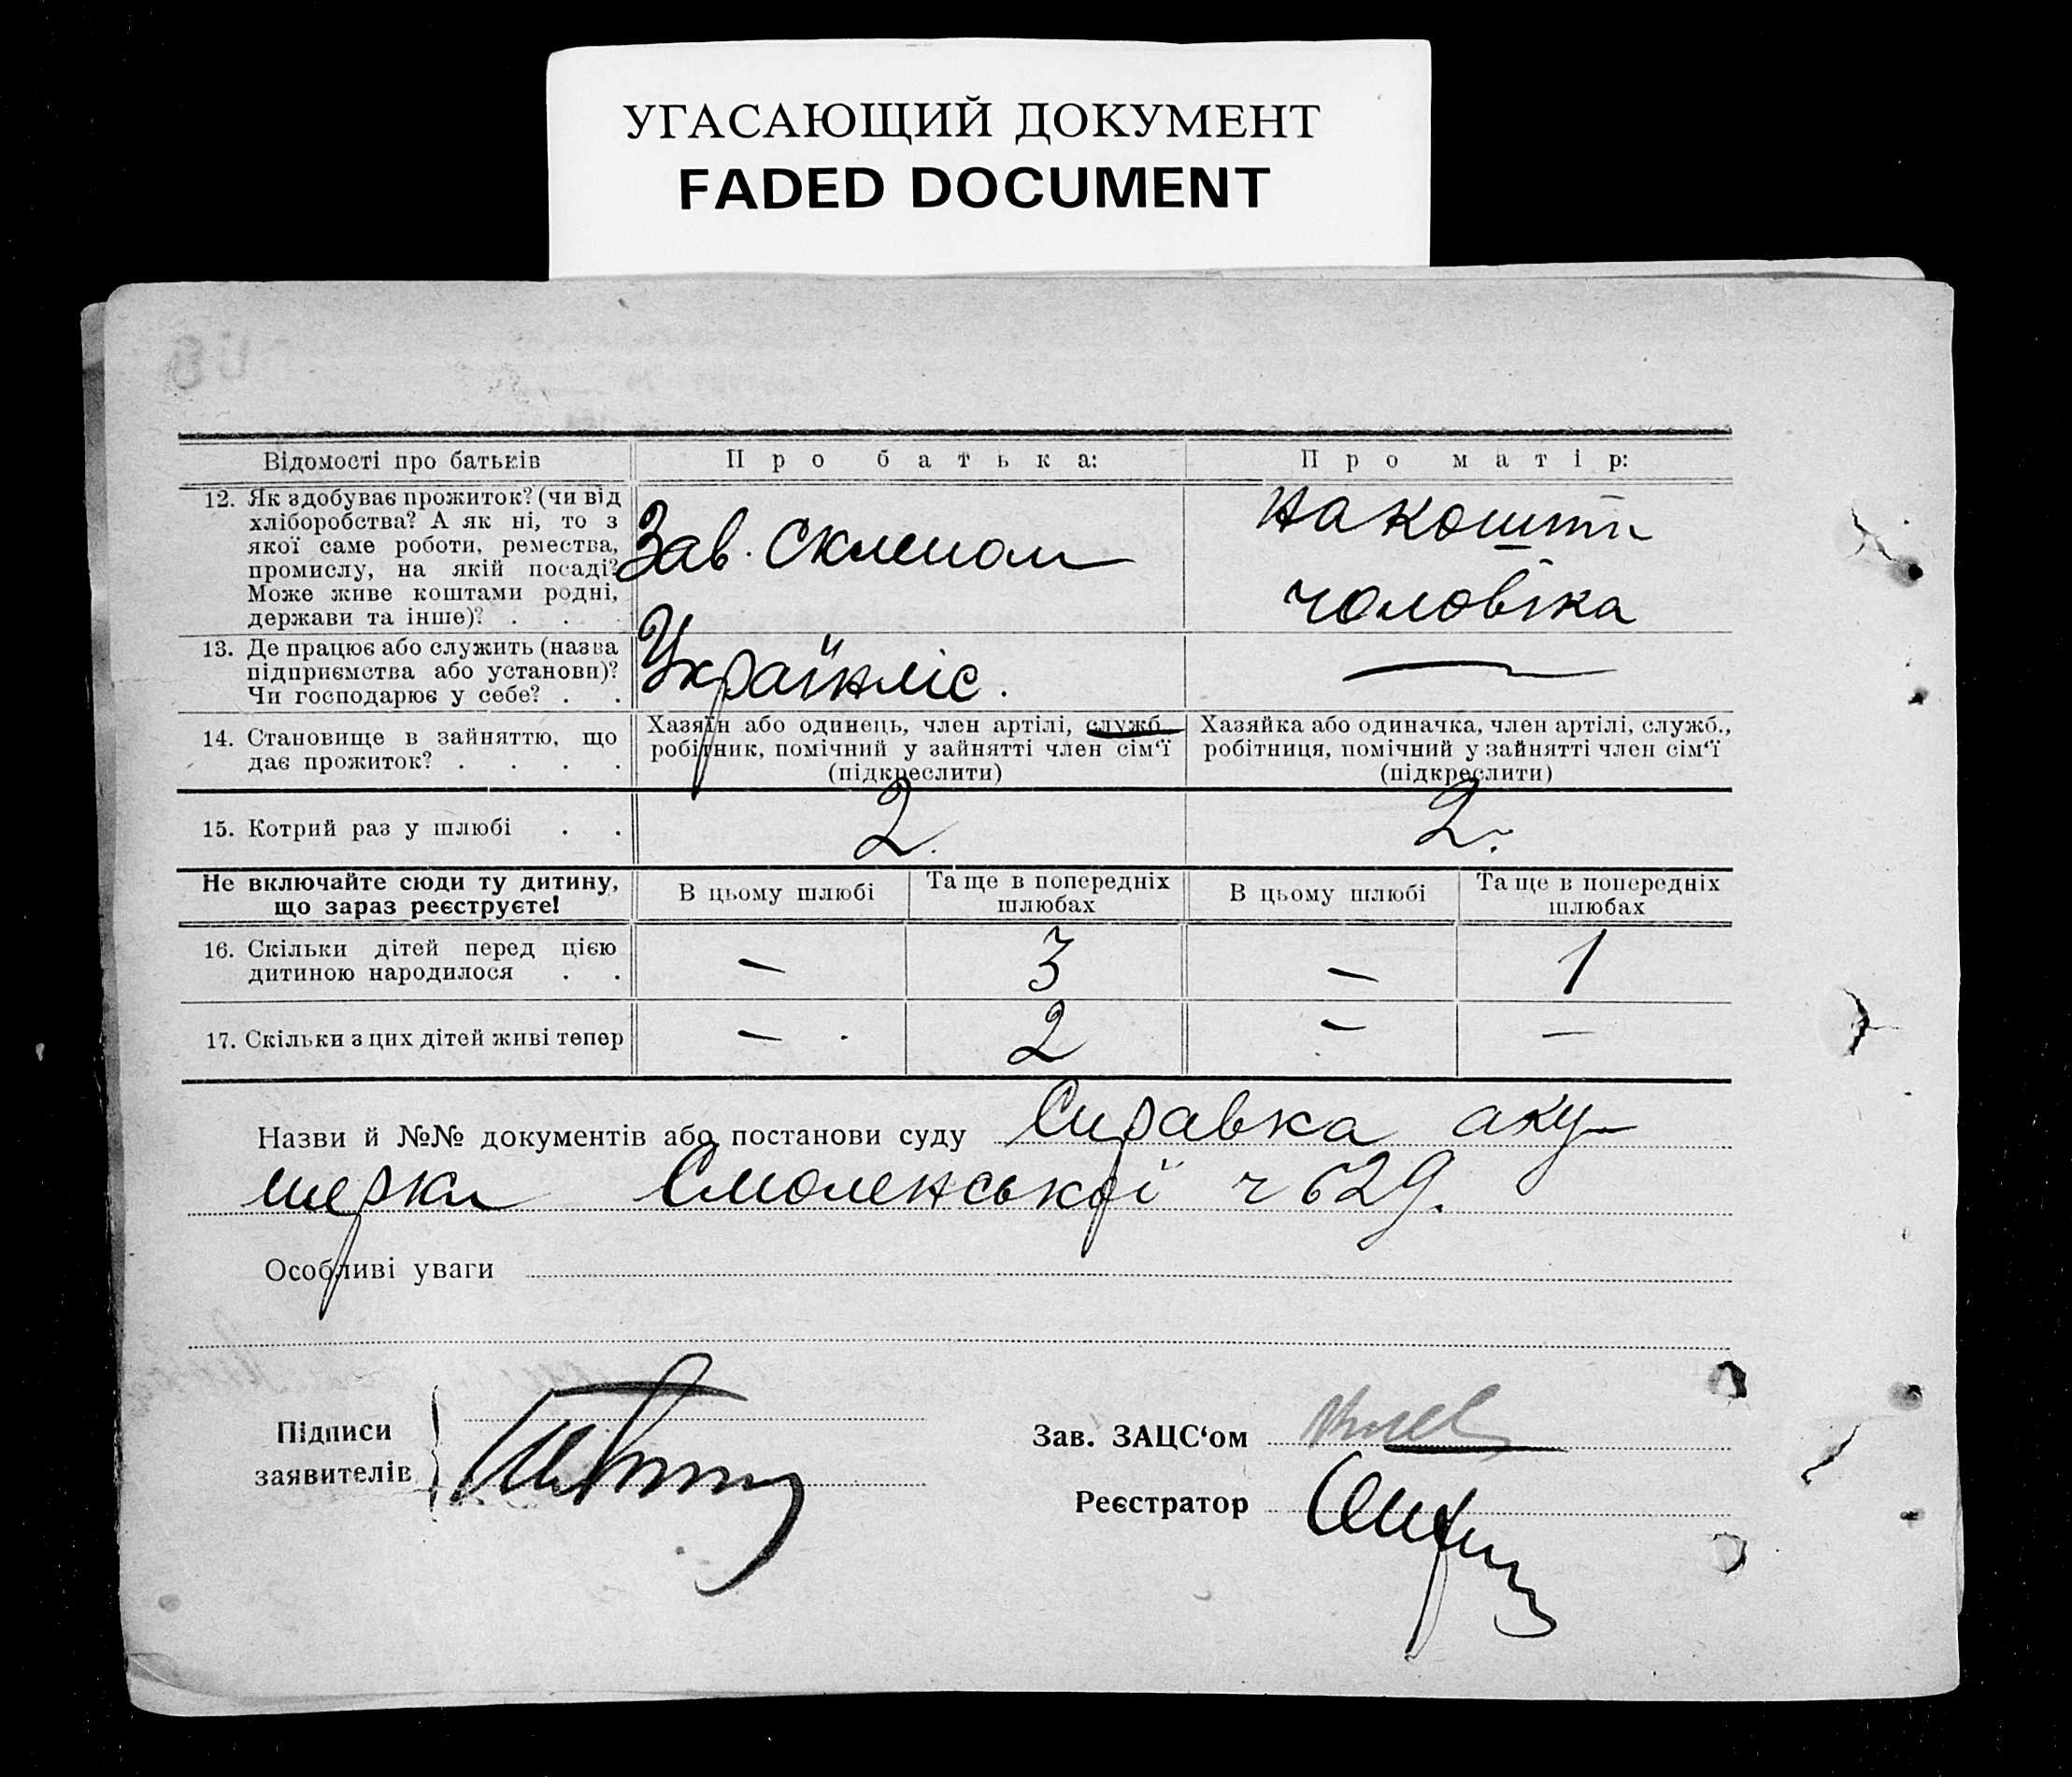 УГАСАЮЩИЙ ДОКУМЕНТ
FADED DOCUMENT
Відомості про батьків
Про батька:
Про матір:
12. Як здобуває прожиток? (чи від
хліборобства? А як ні, то з
якої саме роботи, ремества,
промислу, на якій посаді?
Може живе коштами родні,
держави та інше)? . . .
Зав. Склепом
на кошти
чоловіка
13. Де працює або служить (назва
підприємства або установи)?
Чи господарює у себе? . .
Українліс.
—
14. Становище в зайняттю, що
дає прожиток? . . . .
Хазяїн або одинець, член артілі, служб.
робітник, помічний у зайнятті член сім‘ї
(підкреслити)
Хазяйка або одиначка, член артілі, служб.,
робітниця, помічний у зайнятті член сім‘ї
(підкреслити)
15. Котрий раз у шлюбі . .
2.
2.
Не включайте сюди ту дитину,
що зараз реєструєте!
В цьому шлюбі
Та ще в попередніх
шлюбах
В цьому шлюбі
Та ще в попередніх
шлюбах
16. Скільки дітей перед цією
дитиною народилося . .
— 3 — 1
17. Скільки з цих дітей живі тепер
— 2 — —
Назви й №№ документів або постанови суду Справка аку-
шерки Смоленської ч 629.
Особливі уваги
Підписи
заявителів
Зав. ЗАЦС‘ом
Реєстратор